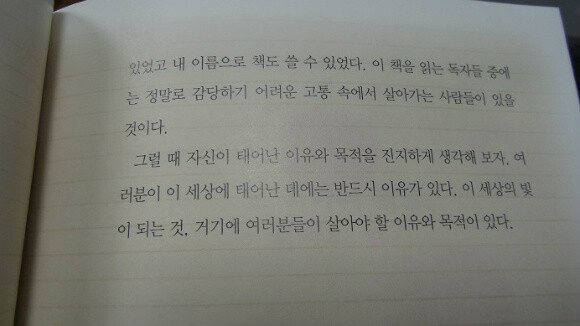 있었고 내 이름으로 책도 쓸 수 있었다. 이 책을 읽는 독자들 중에
는 정말로 감당하기 어려운 고통 속에서 살아가는 사람들이 있을
것이다.
그럴 때 자신이 태어난 이유와 목적을 진지하게 생각해 보자. 여
러분이 이 세상에 태어난 데에는 반드시 이유가 있다. 이 세상의 빛
이 되는 것, 거기에 여러분들이 살아야 할 이유와 목적이 있다.